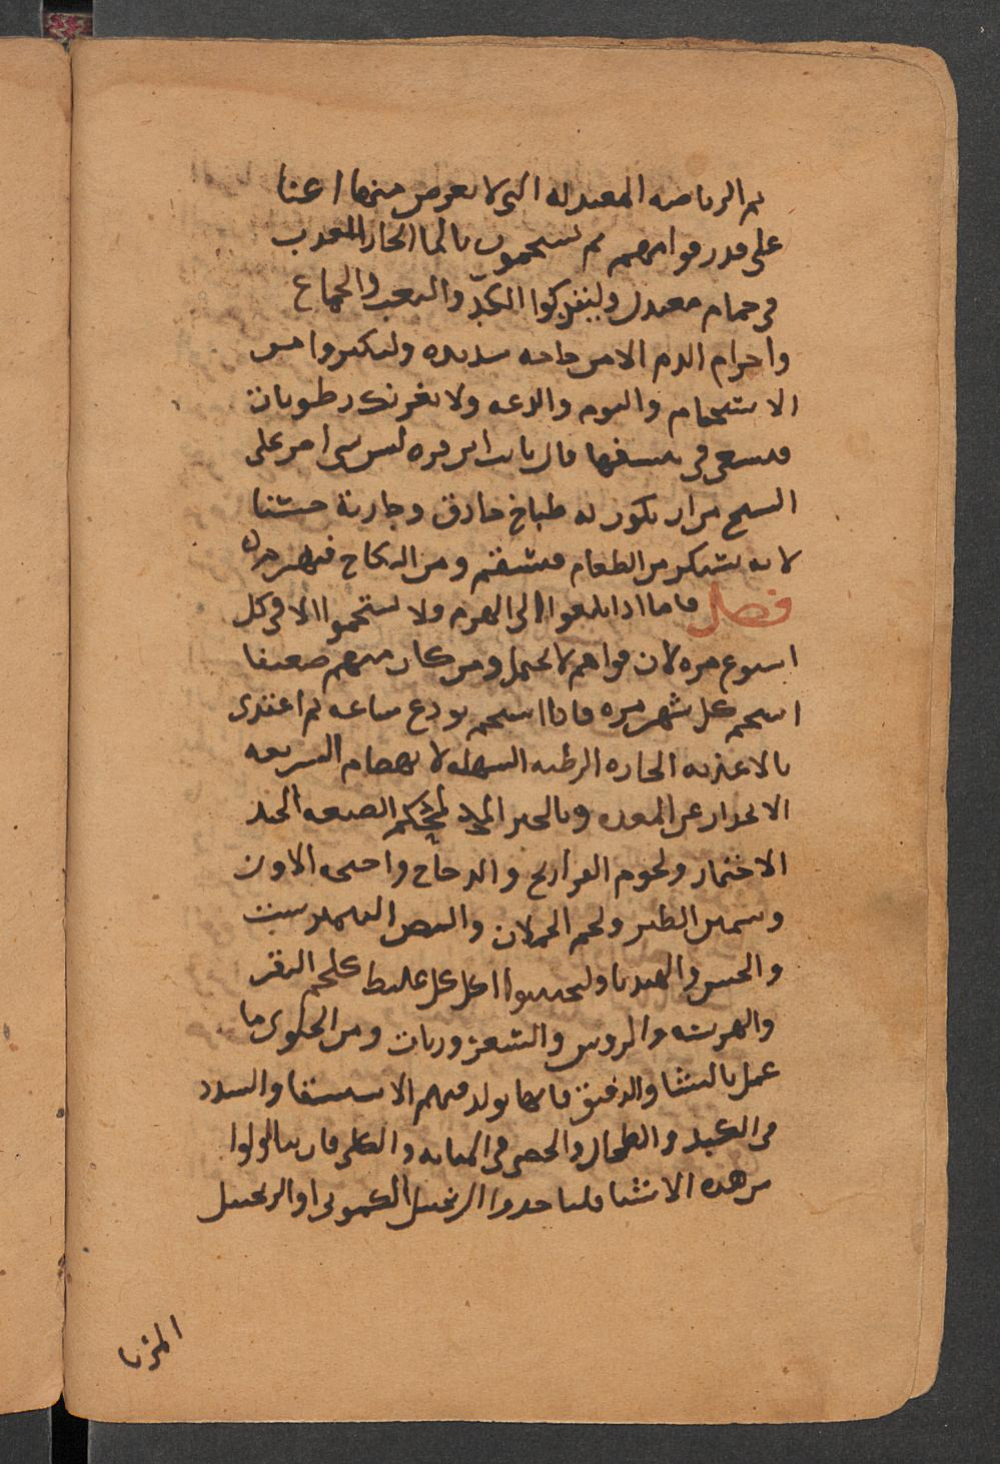 ثم الرياضه المعتدله التى لا يعرض منها اعيا
على قدر قواهم ثم يستحمون بالما الحار العذب
فى حمام معتدل وليتركوا الكد والتعب والجماع
واخراج الدم الا من حاجه شديده وليكثروا من
الاستحمام والنوم والدعه ولا يغرنك رطوبات
فى قال ثابت ابن قره ليس شى اضر على
الشيخ من ان يكون له طباخ حاذق وجارية حسنا
لانه يستكثر من الطعام فيسقم ومن النكاح فيهرم
فصل فاما اذا بلغوا الى الهرم ولا يستحموا الا فى كل
اسبوع مره لان قواهم لا تحتمل ومن كان منهم ضعيفا
استحم كل شهر مره فاذا استحم تودع ساعه ثم اغتذى
بالاغذيه الحاره الرطبه السهله الانهضام السريعه
الانحدار عن المعده وبالخبز المحكم الصنعه الجيد
الاختمار ولحوم الفراريج والدجاج واخصى الاوز
وسمين الطير ولحم الحملان والبيض النيمبرشت
والخس والهندبا وليجتنبوا اكل كل غليظ كلحم البقر
والهريسه والروس والشعزوريات ومن الحلوى ما
عمل بالنشا والدقيق فانها تولد فيهم الاستسقا والسدد
فى الكبد والطحال والحصى فى المثانه والكلى فان تناولوا
من هذه الاشيا فلياخذوا الزنجبيل الكمونى او الزنجبيل
المربا